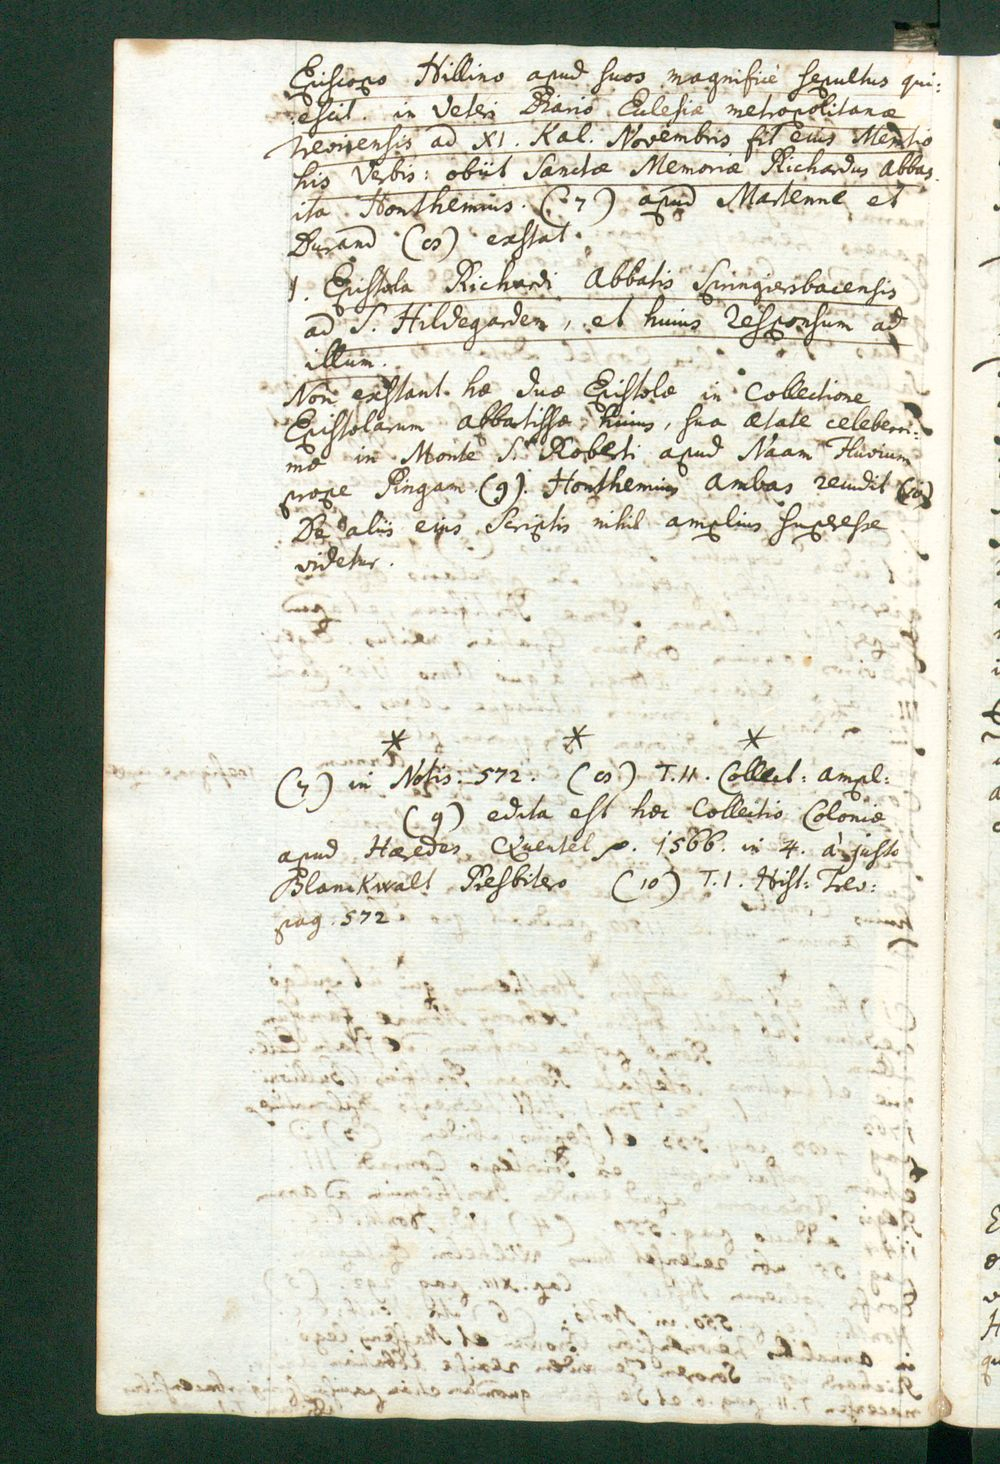 Episcopo Hillino apud suos magnificè sepultus qui:
escit. in Veteri Diario Eclesiæ metropolitanæ
trevirensis ad XI. Kal. Novembris fit eius Mentio
his Verbis: obiit Sanctæ Memoriæ Richardus Abbas.
ita Honthemius. (7) apud Martenne et
Durand (8) exstat.
1. Epistola Richardi Abbatis Springiersbacensis
ad S. Hildegarden, et huius Responsum ad
illum.
Non exstant hæ duæ Epistolæ in Collectione
Epistolarum abbatissæ huius, sua ætate celeberri:
mæ in Monte S. Roberti apud Naam Fluvium
prope Pingam. (9). Honthemius ambas recudit (10)
De aliis ejus Scriptis nihil amplius superesse
videtur.
* * *
(7) in Notis. 572. (8) T. II. Collect: ampl:
(9) edita est hæc Collectio Coloniæ
apud Hæredes Quentel. 1566. in 4. à justo
Blanckwalt Presbitero (10) T. I. Hist: Trev:
pag. 572